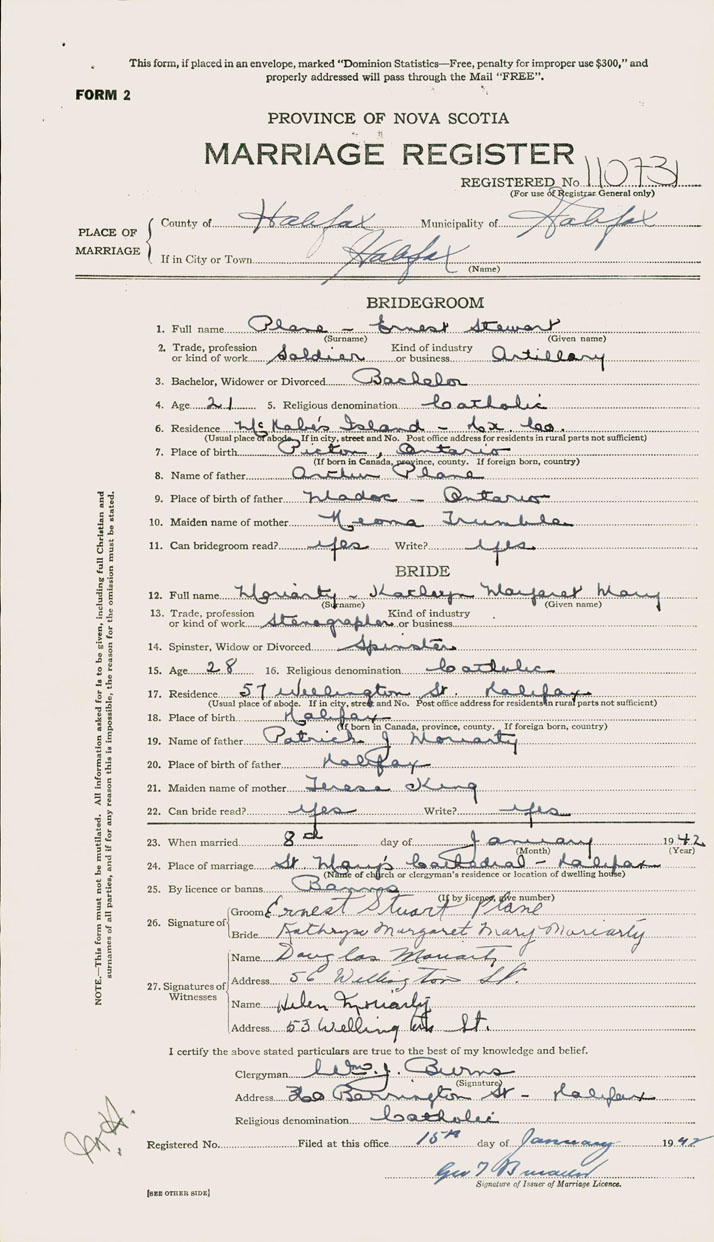 This form, if placed in an envelope, marked "Dominion Statistics—Free, penalty for improper use $300," and
properly addressed will pass through the Mail "FREE".
FORM 2
PROVINCE OF NOVA SCOTIA
MARRIAGE REGISTER
REGISTERED No. 110731
(For use of Registrar General only)
PLACE OF MARRIAGE
County of Halifax Municipality of Halifax
If in City or Town Halifax
(Name)
BRIDEGROOM
1. Full name Plane - Ernest Stewart
(Surname) (Given name)
2. Trade, profession or kind of work Soldier Kind of industry or business Artillary
3. Bachelor, Widower or Divorced Bachelor
4. Age 21 5. Religious denomination Catholic
6. Residence McNabs Island - Hx. Co.
(Usual place of abode. If in city, street and No. Post office address for residents in rural parts not sufficient)
7. Place of birth Picton, Ontario
(If born in Canada, province, county. If foreign born, country)
8. Name of father Arthur Plane
9. Place of birth of father Madoc - Ontario
10. Maiden name of mother Neoma Trumble
11. Can bridegroom read? yes Write? yes
BRIDE
12. Full name Moriarty - Kathryn Margaret Mary
(Surname) (Given name)
13. Trade, profession or kind of work Stenographer Kind of industry or business
14. Spinster, Widow or Divorced Spinster
15. Age 28 16. Religious denomination Catholic
17. Residence 57 Wellington St. Halifax
(Usual place of abode. If in city, street and No. Post office address for residents in rural parts not sufficient)
18. Place of birth Halifax
(If born in Canada, province, county. If foreign born, country)
19. Name of father Patrick J Moriarty
20. Place of birth of father Halifax
21. Maiden name of mother Teresa King
22. Can bride read? yes Write? yes
23. When married 8th day of January 1942
(Month) (Year)
24. Place of marriage St. Mary's Cathedral - Halifax
(Name of church or clergyman's residence or location of dwelling house)
25. By licence or banns Banns
(If by licence, give number)
26. Signature of
Groom Ernest Stuart Plane
Bride Kathryn Margaret Mary Moriarty
27. Signatures of Witnesses
Name Douglas Moriarty
Address 56 Wellington St.
Name Helen Moriarty
Address 53 Wellington St.
I certify the above stated particulars are true to the best of my knowledge and belief.
Clergyman Wm. J. Burns
(Signature)
Address Barrington St - Halifax
Religious denomination Catholic
Registered No. Filed at this office 15th day of January 1942
Geo T
Signature of Issuer of Marriage Licence.
[SEE OTHER SIDE]
NOTE.—This form must not be mutilated. All information asked for is to be given, including full Christian and
surnames of all parties, and if for any reason this is impossible, the reason for the omission must be stated.